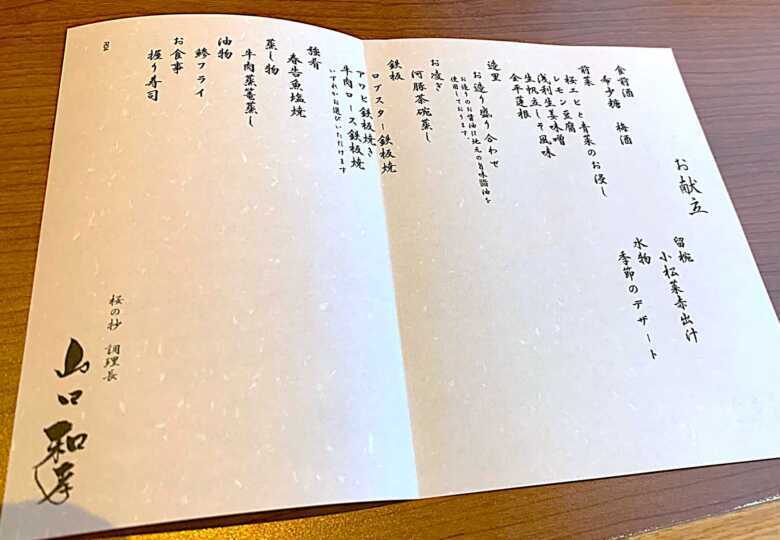 お献立
食前酒
希少糖 梅酒
前菜
桜エビと青菜のお浸し
レモン豆腐
浅利生姜味噌
生帆立しそ風味
金平蓮根
造里
お造り盛り合わせ
お造りのお醤油は地元の旨味醤油を
使用しております
お凌ぎ
河豚茶碗蒸し
鉄板
ロブスター鉄板焼
アワビ鉄板焼き
牛肉ロース鉄板焼
いずれかお選びいただけます
強肴
春告魚塩焼
蒸し物
牛肉蒸篭蒸し
油物
鯵フライ
お食事
握り寿司
留椀
小松菜赤出汁
水物
季節のデザート
桜の抄 調理長
山口和孝